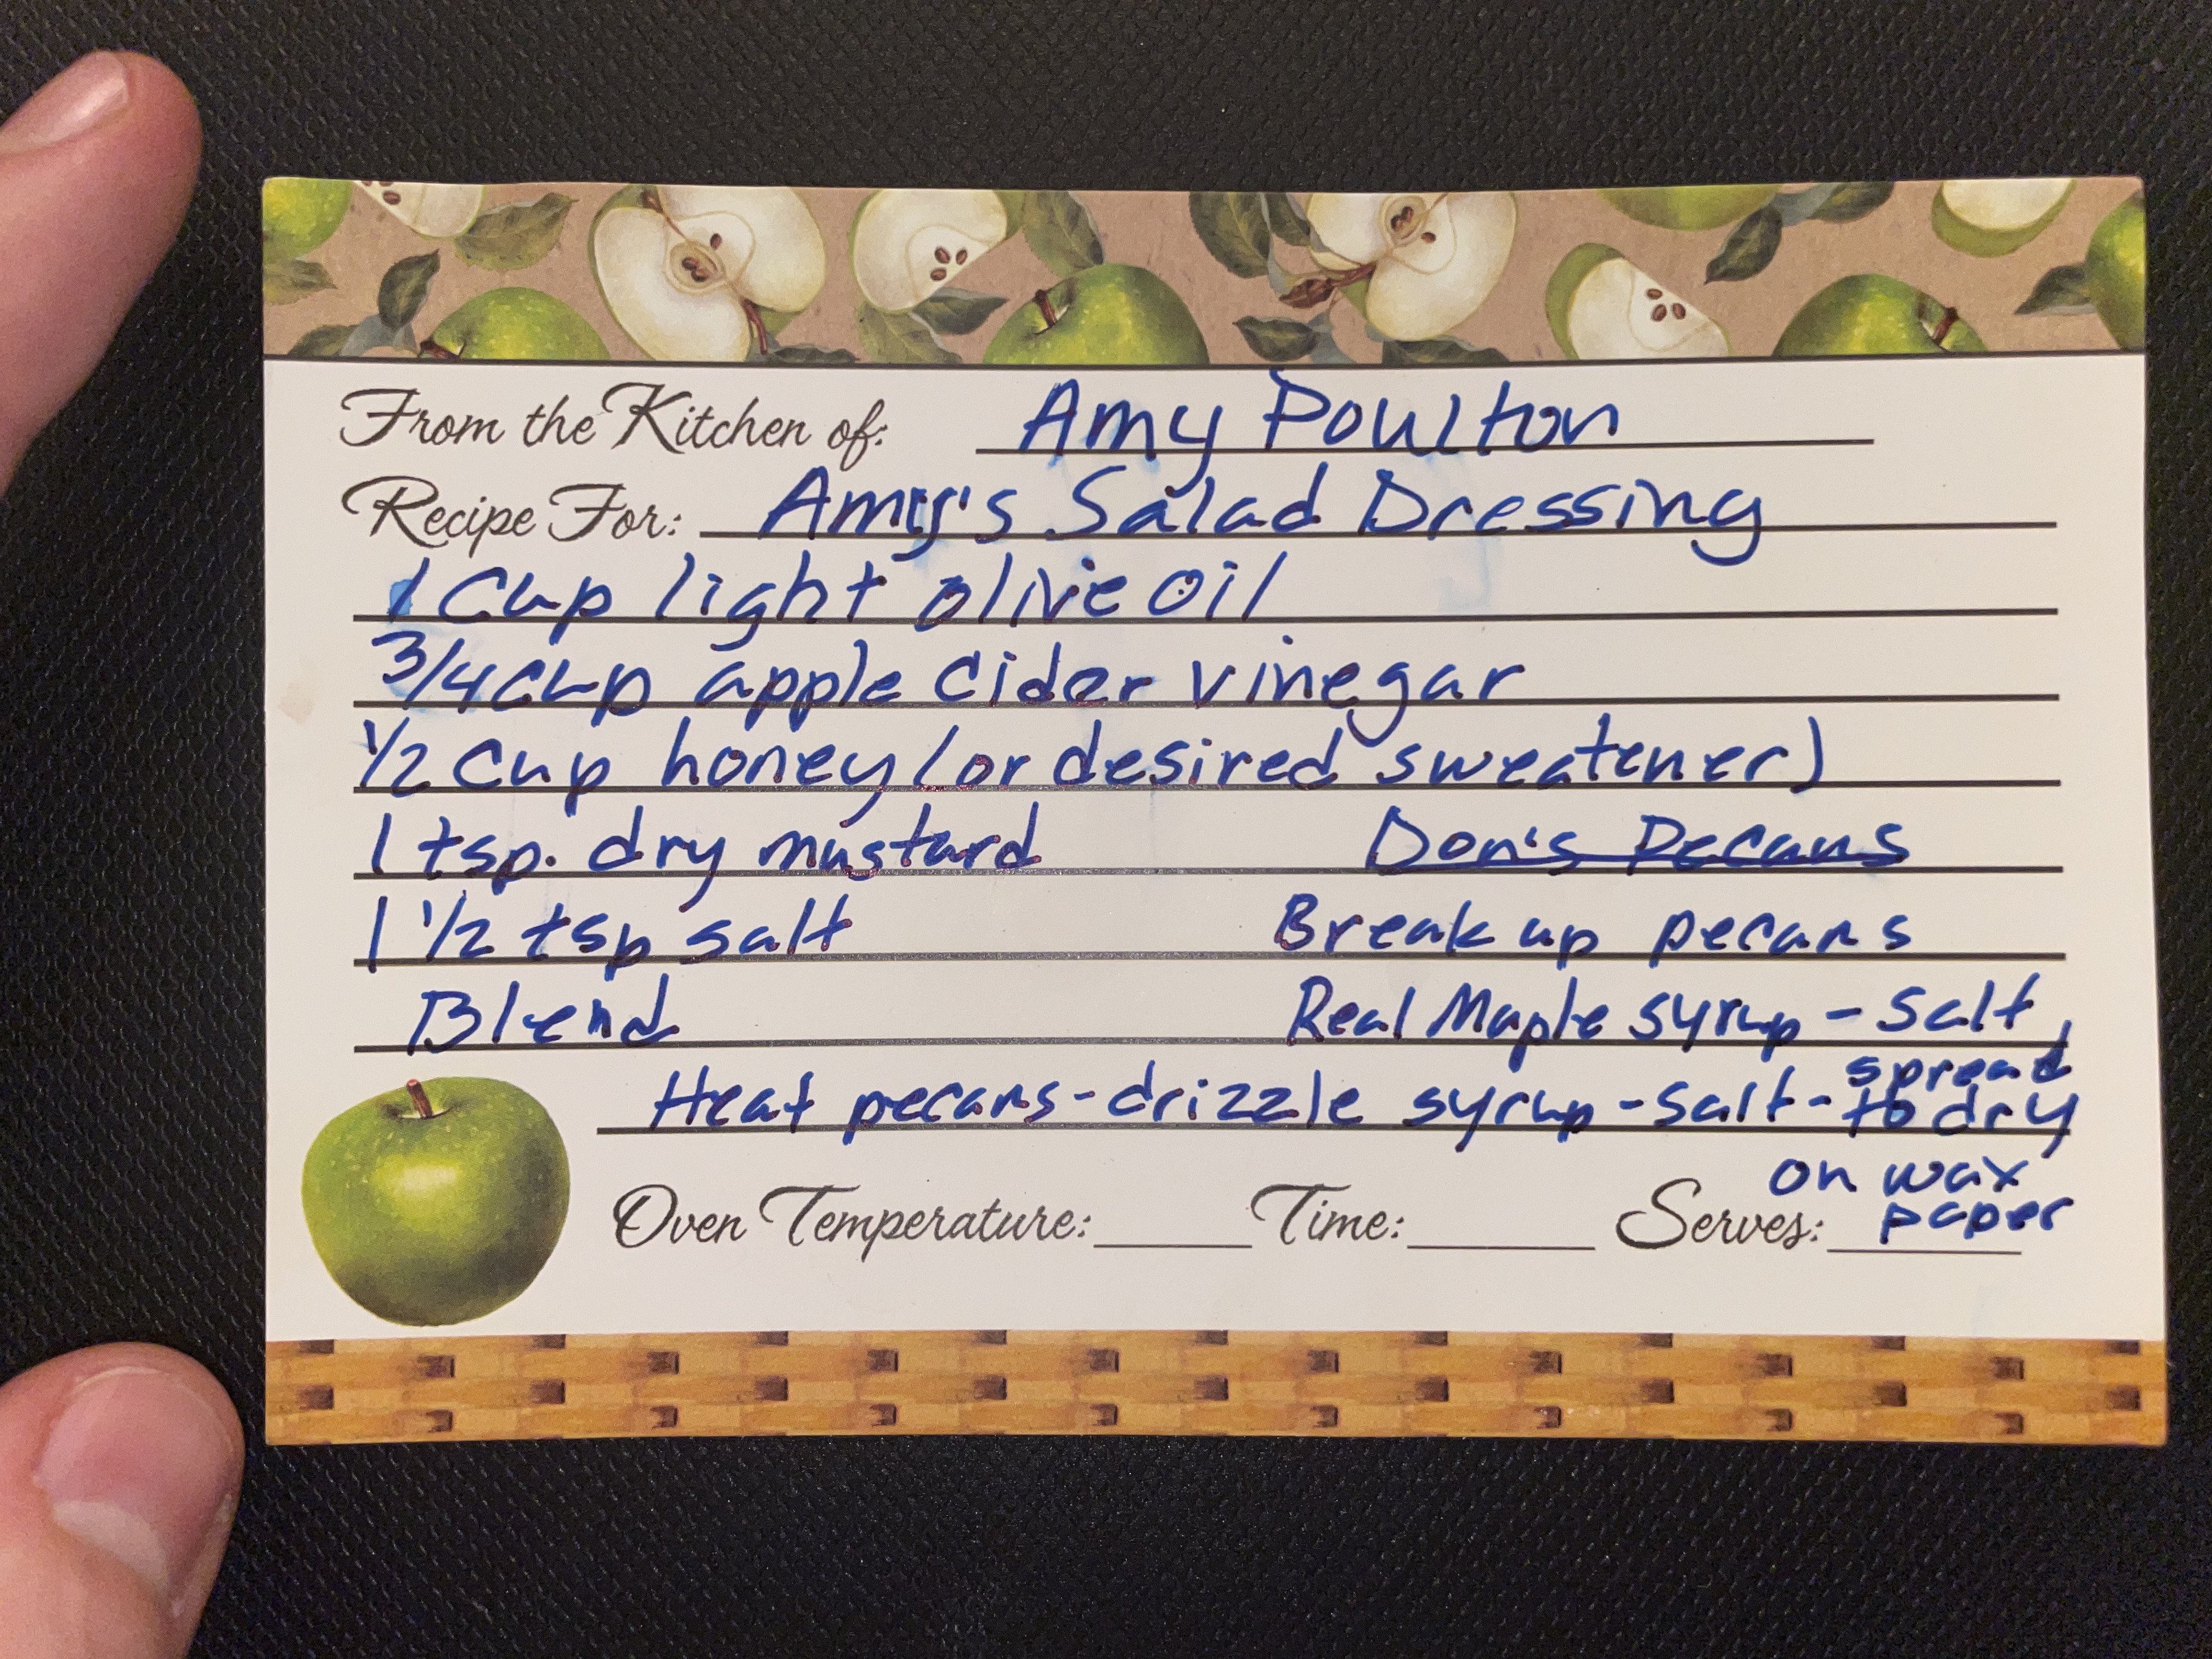 From the Kitchen of: Amy Poulton
Recipe For: Amy's Salad Dressing
1 cup light olive oil
3/4 cup apple cider vinegar
1/2 cup honey (or desired sweatener)
1 tsp. dry mustard Don's Pecans
1 1/2 tsp salt Break up pecans
Blend Real Maple syrup - salt
Heat pecans - drizzle syrup - salt - spread to dry
on wax
paper
Oven Temperature: Time: Serves: